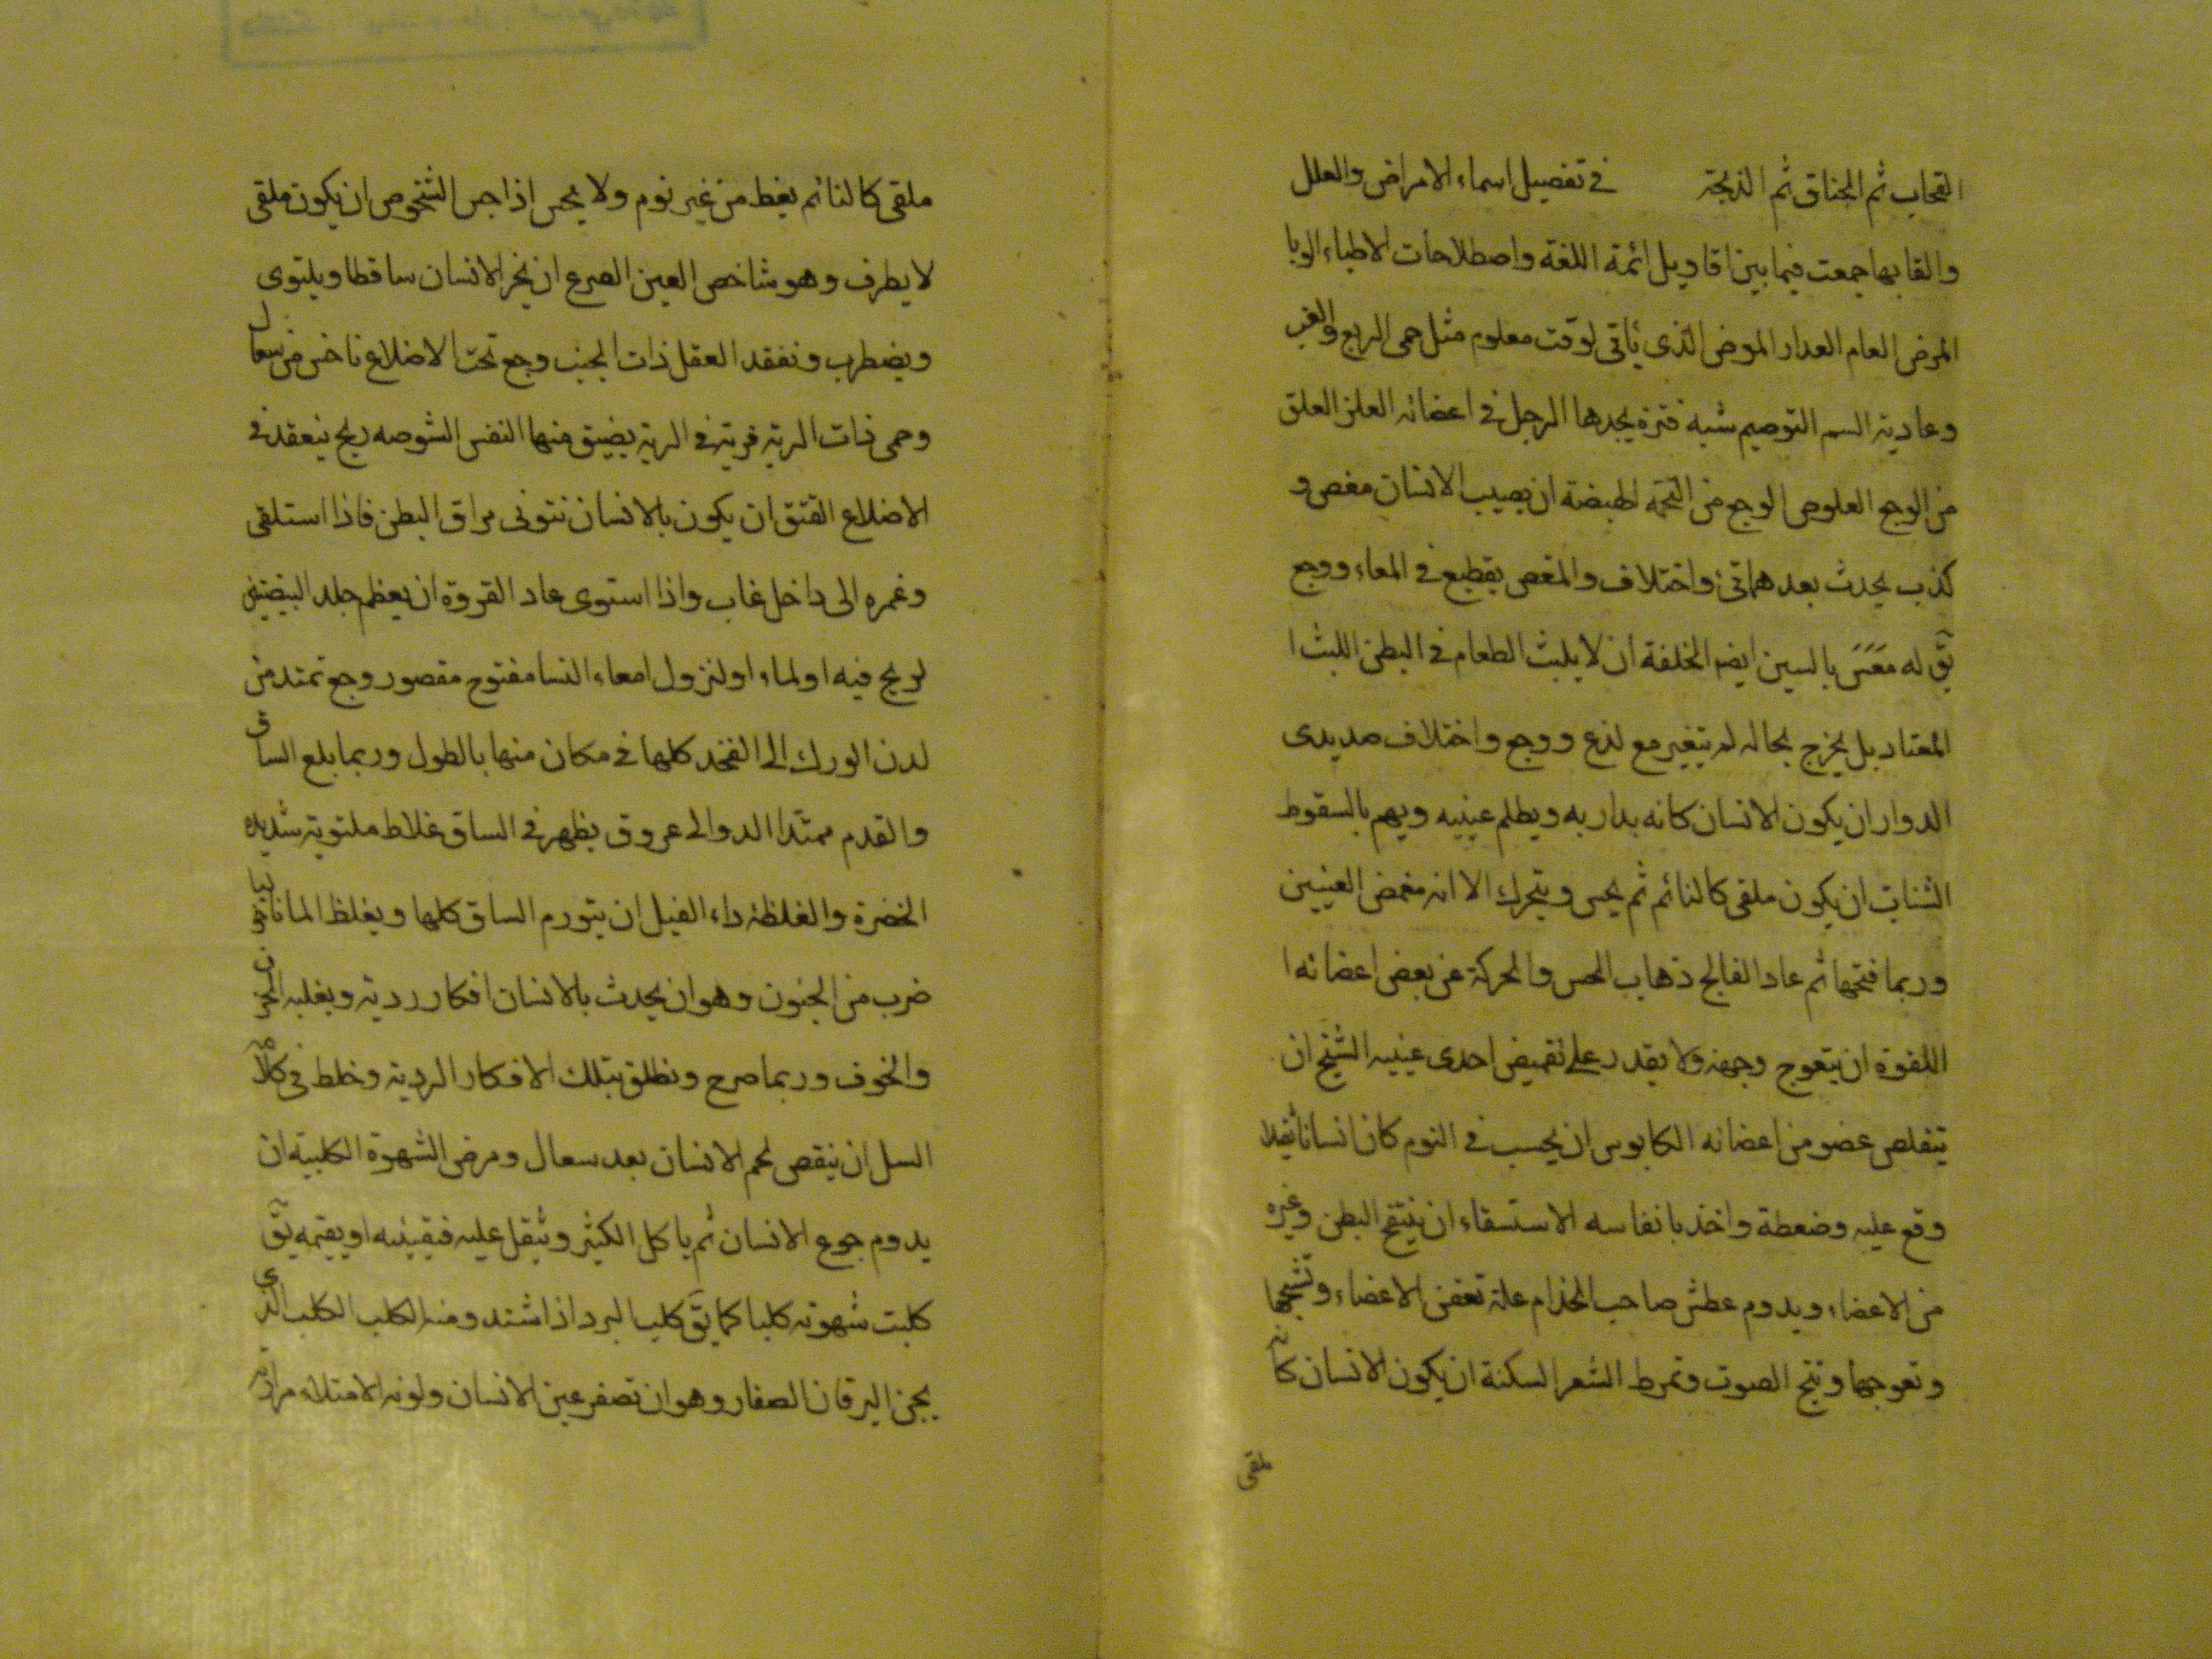 القحاب ثم الخناق ثم الذبحة في تفصيل اسماء الامراض والعلل
والقابها جمعت فيما بين اقاويل ائمة اللغة واصطلاحات الاطباء الوبا
المرض العام العداد المرض الذي يأتي لوقت معلوم مثل حمى الربع والغب
وعادية السم التوصيم شبه فترة يجدها الرجل في اعضائه العلز العلق
من الوجع العلوص الوجع من التخمة الهيضة ان يصيب الانسان مغص و
كذب يحدث بعدهما قئ واختلاف والمغص يقطيع في المعاء ووجع
يق له مغس بالسين ايضا الخلفة ان لا يلبث الطعام في البطن اللبث ا
المعتاد بل يخرج بحاله لم يتغير مع لذع ووجع واختلاف صديدى
الدوار ان يكون الانسان كانه يدار به ويظلم عينيه ويهم بالسقوط
الثبات ان يكون ملقى كالنائم ثم يحس ويتحرك الا انه مغمض العينين
وربما فتحها ثم عاد الفالج ذهاب الحس والحركة عن بعض اعضائه ا
اللقوة ان يتعوج وجهه ولا يقدر على تغميض احدى عينيه الشنج ان
يتقلص عضو من اعضائه الكابوس ان يحسب في النوم كان انسانا ثقيلا
وقع عليه وضغطة واخذ بانفاسه الاستسقاء ان ينتفخ البطن وغيره
من الاعضاء ويدوم عطش صاحب الجذام علة تعفن الاعضاء وتشنجها
وتعوجها وتبح الصوت وتمرط الشعر السكتة ان يكون الانسان كانه
ملقى
ملقى كالنائم يغط من غير نوم ولا يحس اذا جس الشخوص ان يكون ملقى
لا يطرف وهو شاخص العين الصرع ان يخر الانسان ساقطا ويلتوى
ويضطرب ونفقد العقل ذات الجنب وجع تحت الاضلاع ناخس من سعال
وحمى ذات الرية قرية في الرية يضيق منها النفس الشوصه ريح ينعقد في
الاضلاع الفتق ان يكون بالانسان نتوفى مراق البطن فاذا استلقى
وغمره الى داخل غاب واذا استوى عاد القروة ان يعظم جلد البيضتين
لريح فيه او لماء او لنزول امعاء النسا مفتوح مقصور وجع تمتد من
لدن الورك الى الفخد كلها في مكان منها بالطول وربما بلغ الساق
والقدم ممتدا الدوالى عروق يظهر في الساق غلاط ملتوية شديده
الخضرة والغلظة داء الفيل ان يتورم الساق كلها ويغلظ المانخوليا
ضرب من الجنون وهو ان يحدث بالانسان افكار ردية ويغلبه الحزن
والخوف وربما صرح ونطلق بتلك الافكار الردية وخلط في كلامه
السل ان ينقص لحم الانسان بعد سعال ومرض الشهوة الكلبية ان
يدوم جوع الانسان ثم ياكل الكثير ويثقل عليه فيقيئيه او يقيمه يق
كلبت شهوته كلبا كما يق كلب البرد اذا اشتد ومنه الكلب الكلب الذي
يجن اليرقان الصفار وهو ان تصفر عين الانسان ولونه الامتلاء